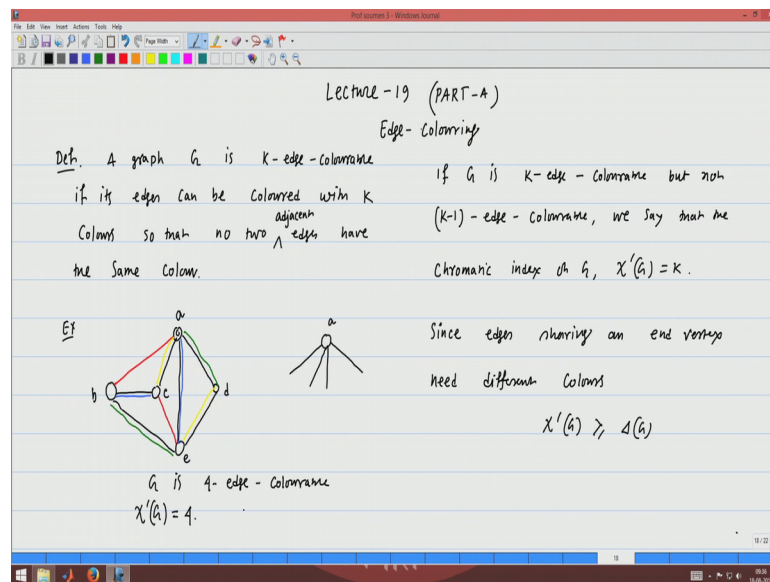 Prof soumen 3 - Windows Journal
File Edit View Insert Actions Tools Help
Page Width
Lecture-19 (PART-A)
Edge-Colouring
Defn. A graph G is K-edge-colourable
if its edges can be coloured with K
Colours so that no two adjacent edges have
the same colour.
If G is K-edge-colourable but not
(K-1)-edge-colourable, we say that the
Chromatic index of G, χ'(G) = K.
Ex
a
b
c
d
e
G is 4-edge-colourable
χ'(G) = 4.
a
Since edges sharing an end vertex
need different colours
χ'(G) ≥ Δ(G)
18 / 22
18
09:36